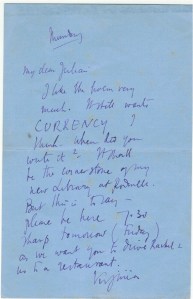 My dear Julian
I like the poem very
much. It still wants
CURRENCY I
think. when did you
write it? It shall
be the cornerstone of my
new Library at Rodmell.
But this is to say —
please be here 7.30
sharp tomorrow (Friday)
as we want you to drive Rachel &
us to a restaurant.
Virginia